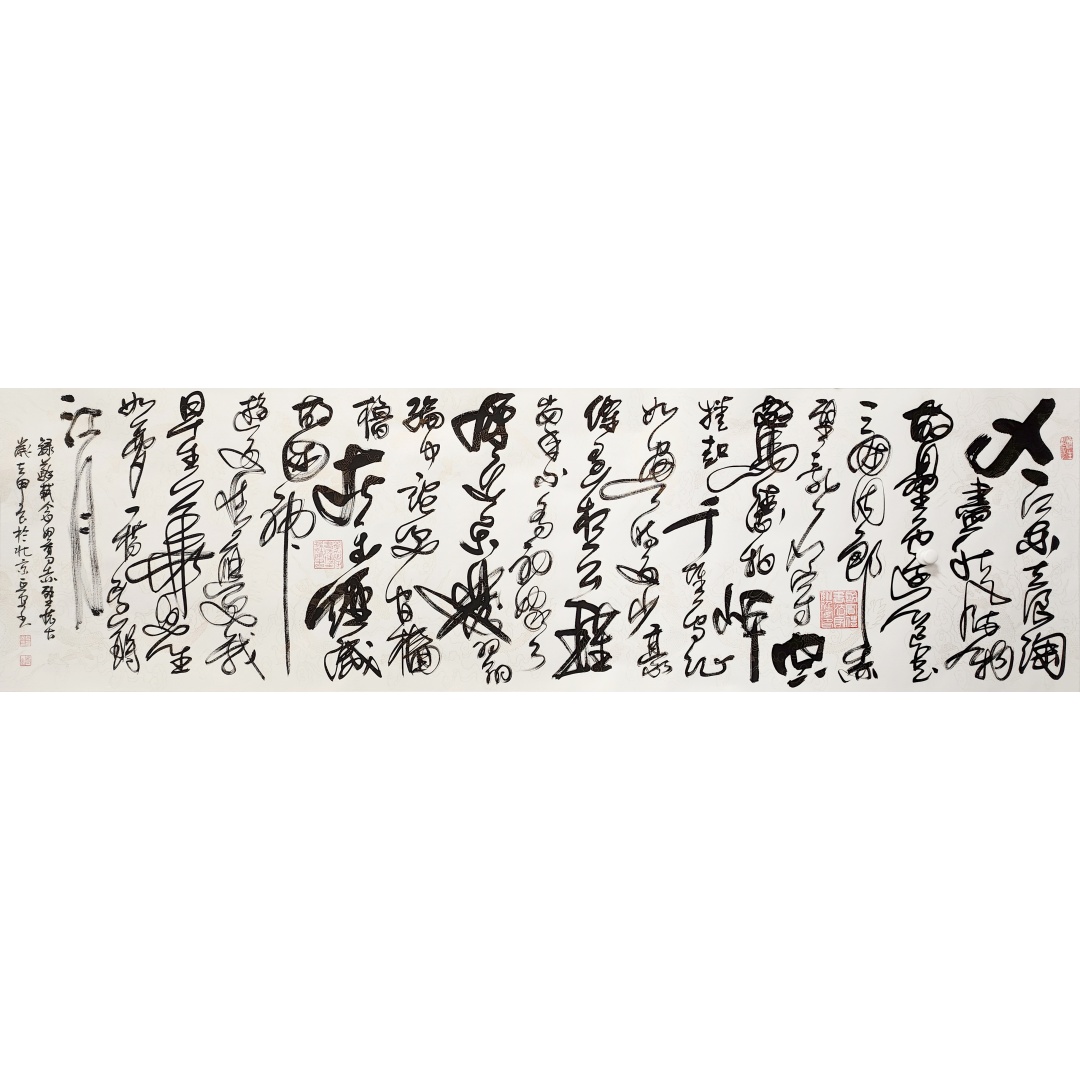 大江東去浪淘
盡風流人物
故壘西邊人道是
三國周郎赤
壁亂石穿空
驚濤拍岸
捲起千堆雪江山
如畫一時多少豪
傑遙想公瑾
當年小喬初嫁了
雄姿英發羽扇
綸巾談笑間檣
櫓灰飛煙滅
故國神
遊多情應笑我
早生華髮人生
如夢一樽還酹
江月
錄蘇軾念奴嬌赤壁懷古
歲壬申於北京